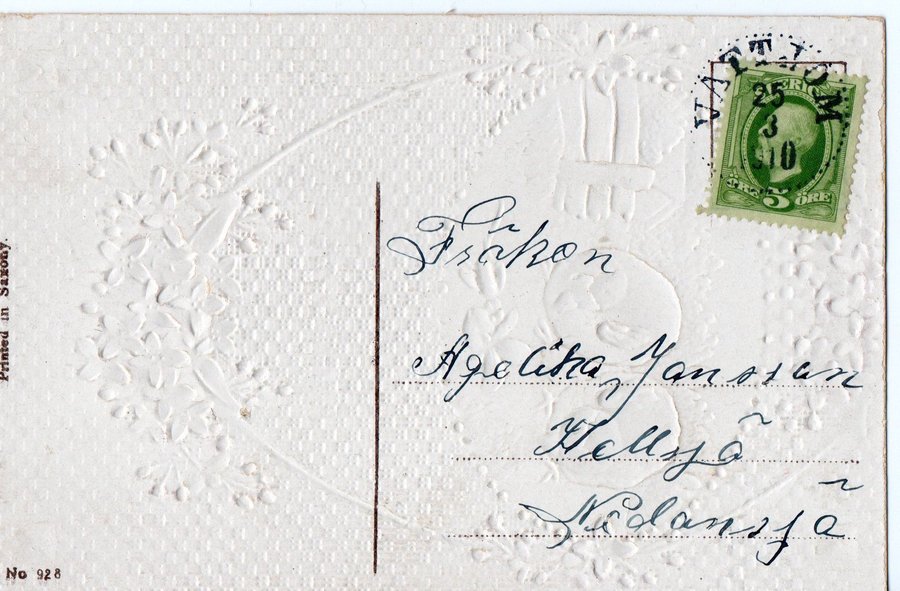 VATTJOM
25
3
910
SVERIGE
5 ÖRE
Fröken
Agelika Jansson
Hellsjö
Nedansjö
Printed in Saxony.
No 928